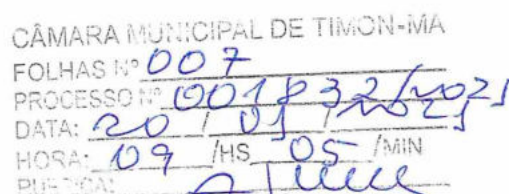 CÂMARA MUNICIPAL DE TIMON-MA
FOLHAS Nº 007
PROCESSO Nº 001832/2021
DATA: 20 / 01 / 2021
HORA: 09 /HS 05 /MIN
RUBRICA: